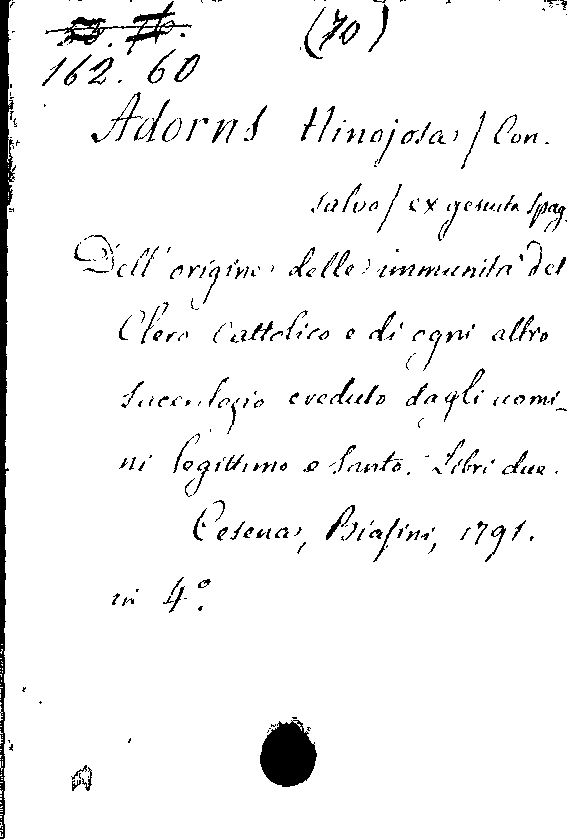 (70)
162. 60
Adorns Hinojosa / Con.
salvo / ex gesuita Spag.
Dell' origine delle immunità del
Clero Cattolico e di ogni altro
Sacerdozio creduto dagli uomi_
ni legittimo e Santo. Libri due.
Cesena, Biasini, 1791.
in 4º